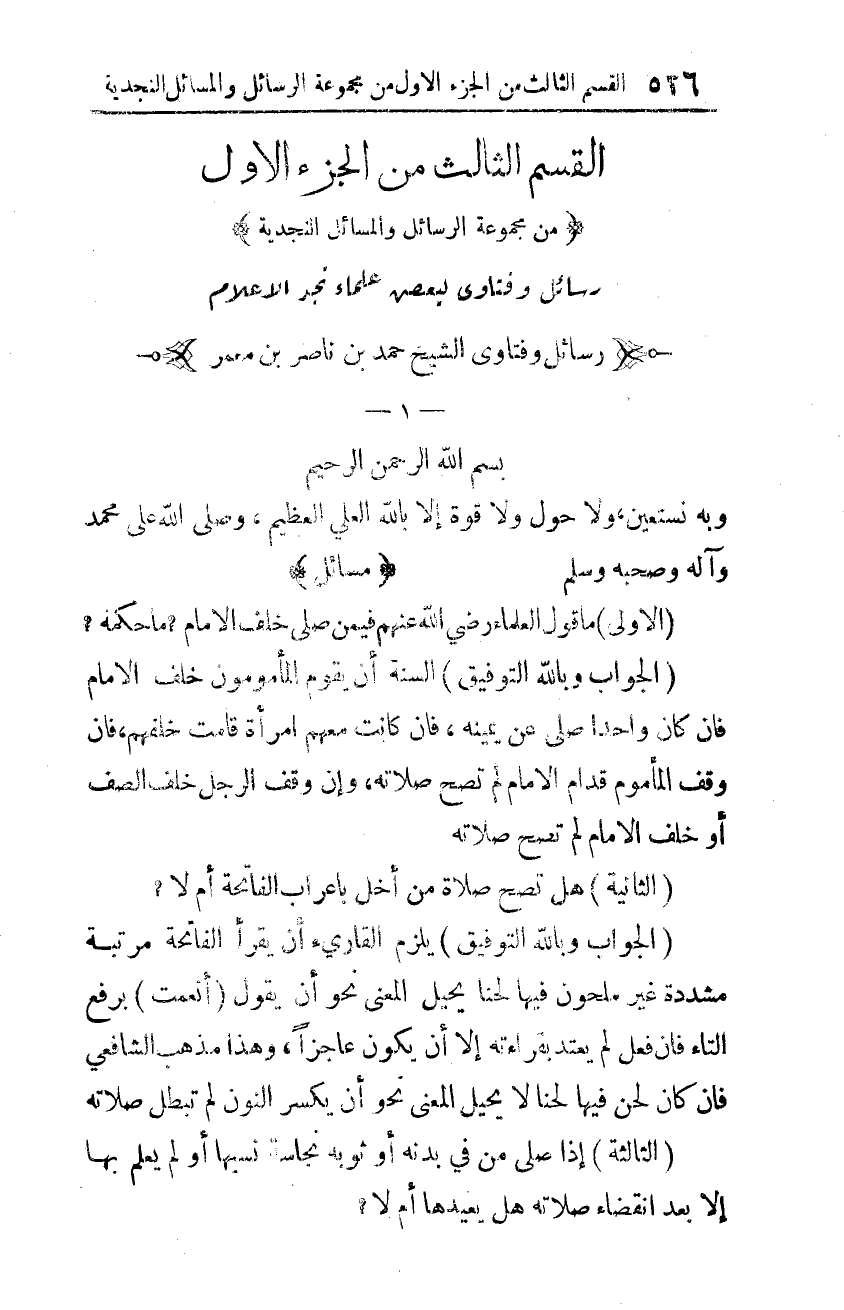 ٥٢٦ القسم الثالث من الجزء الاول من مجموعة الرسائل والمسائل النجدية
القسم الثالث من الجزء الاول
﴿ من مجموعة الرسائل والمسائل النجدية ﴾
رسائل وفتاوى لبعض علماء نجد الاعلام
رسائل وفتاوى الشيخ حمد بن ناصر بن معمر
— ١ —
بسم الله الرحمن الرحيم
وبه نستعين، ولا حول ولا قوة إلا بالله العلي العظيم ، وصلى الله على محمد
وآله وصحبه وسلم ﴿ مسائل ﴾
(الاولى) ما قول العلماء رضي الله عنهم فيمن صلى خلف الامام ? ما حكمه ?
( الجواب وبالله التوفيق ) السنة أن يقوم المأمومون خلف الامام
فان كان واحدا صلى عن يمينه ، فان كانت معهم امرأة قامت خلفهم، فان
وقف المأموم قدام الامام لم تصح صلاته، وإن وقف الرجل خلف الصف
أو خلف الامام لم تصح صلاته
( الثانية ) هل تصح صلاة من أخل باعراب الفاتحة أم لا ?
( الجواب وبالله التوفيق ) يلزم القاريء أن يقرأ الفاتحة مرتبة
مشددة غير ملحون فيها لحنا يحيل المعنى نحو أن يقول ( أنعمت ) برفع
التاء فان فعل لم يعتد بقراءته إلا أن يكون عاجزاً ، وهذا مذهب الشافعي
فان كان لحن فيها لحنا لا يحيل المعنى نحو أن يكسر النون لم تبطل صلاته
( الثالثة ) إذا صلى من في بدنه أو ثوبه نجاسة نسيها أو لم يعلم بها
إلا بعد انقضاء صلاته هل يعيدها أم لا ?